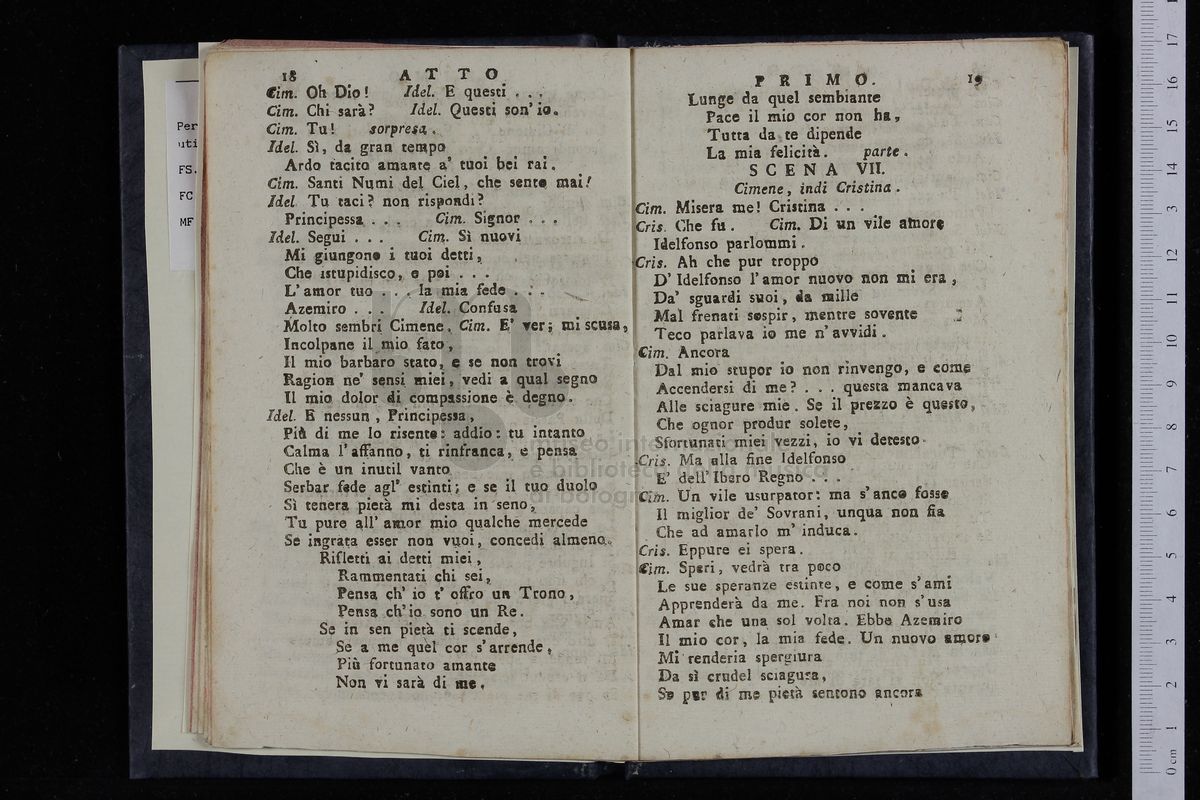 18 ATTO
Cim. Oh Dio! Idel. E questi . . .
Cim. Chi sarà? Idel. Questi son' io.
Cim. Tu! sorpresa.
Idel. Sì, da gran tempo
Ardo tacito amante a' tuoi bei rai.
Cim. Santi Numi del Ciel, che sento mai!
Idel. Tu taci? non rispondi?
Principessa . . . Cim. Signor . . .
Idel. Segui . . . Cim. Sì nuovi
Mi giungono i tuoi detti,
Che istupidisco, e poi . . .
L'amor tuo . . . la mia fede . . .
Azemiro . . . Idel. Confusa
Molto sembri Cimene. Cim. E' ver; mi scusa,
Incolpane il mio fato,
Il mio barbaro stato, e se non trovi
Ragion ne' sensi miei, vedi a qual segno
Il mio dolor di compassione è degno.
Idel. E nessun, Principessa,
Più di me lo risente: addio: tu intanto
Calma l'affanno, ti rinfranca, e pensa
Che è un inutil vanto
Serbar fede agl' estinti; e se il tuo duolo
Sì tenera pietà mi desta in seno,
Tu pure all' amor mio qualche mercede
Se ingrata esser non vuoi, concedi almeno.
Rifletti ai detti miei,
Rammentati chi sei,
Pensa ch' io t' offro un Trono,
Pensa ch' io sono un Re.
Se in sen pietà ti scende,
Se a me quel cor s'arrende,
Più fortunato amante
Non vi sarà di me.
PRIMO. 19
Lunge da quel sembiante
Pace il mio cor non ha,
Tutta da te dipende
La mia felicità. parte.
SCENA VII.
Cimene, indi Cristina.
Cim. Misera me! Cristina . . .
Cris. Che fu. Cim. Di un vile amore
Idelfonso parlommi.
Cris. Ah che pur troppo
D' Idelfonso l'amor nuovo non mi era,
Da' sguardi suoi, da mille
Mal frenati sospir, mentre sovente
Teco parlava io me n'avvidi.
Cim. Ancora
Dal mio stupor io non rinvengo, e come
Accendersi di me? . . . questa mancava
Alle sciagure mie. Se il prezzo è questo,
Che ognor produr solete,
Sfortunati miei vezzi, io vi detesto.
Cris. Ma alla fine Idelfonso
E' dell' Ibero Regno . . .
Cim. Un vile usurpator: ma s'anco fosse
Il miglior de' Sovrani, unqua non fia
Che ad amarlo m' induca.
Cris. Eppure ei spera.
Cim. Speri, vedrà tra poco
Le sue speranze estinte, e come s'ami
Apprenderà da me. Fra noi non s'usa
Amar che una sol volta. Ebbe Azemiro
Il mio cor, la mia fede. Un nuovo amore
Mi renderia spergiura
Da sì crudel sciagura,
Se pur di me pietà sentono ancora
Per
uti
FS.
FC
MF
museo internazionale
e biblioteca della musica
di bologna
0 cm 1 2 3 4 5 6 7 8 9 10 11 12 13 14 15 16 17